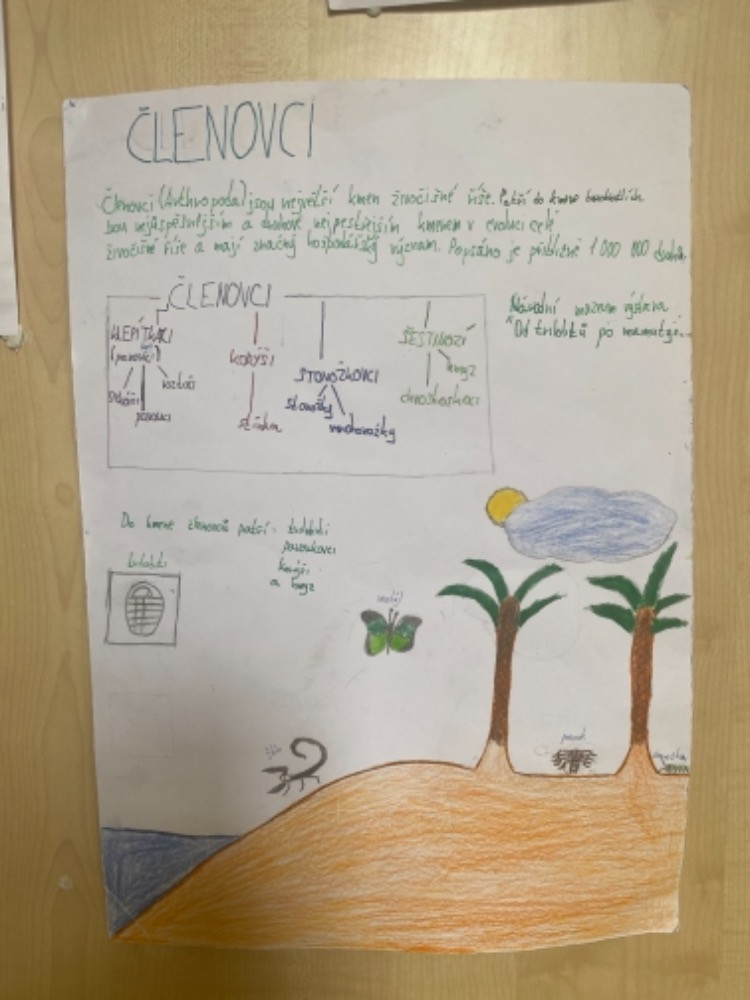 ČLENOVCI
Členovci (Arthropoda) jsou největší kmen živočišné říše. Patří do kmene bezobratlích
Jsou nejúspěšnějším a druhově nejpestřejším kmenem v evoluci celé
živočišné říše a mají značný hospodářský význam. Popsáno je přibližně 1 000 000 druhů.
ČLENOVCI
KLEPÍTKACI
(pavouci)
sekáči
pavouci
roztoči
KORÝŠI
stínka
STONOŽKOVCI
stonožky
mnohonožky
ŠESTINOZÍ
hmyz
chvostoskoci
Národní muzeum výstava
"Od trilobitů po
Do kmene členovců patří: trilobiti
pavoukovci
korýši
a hmyz
trilobiti
motýl
štír
pavouk